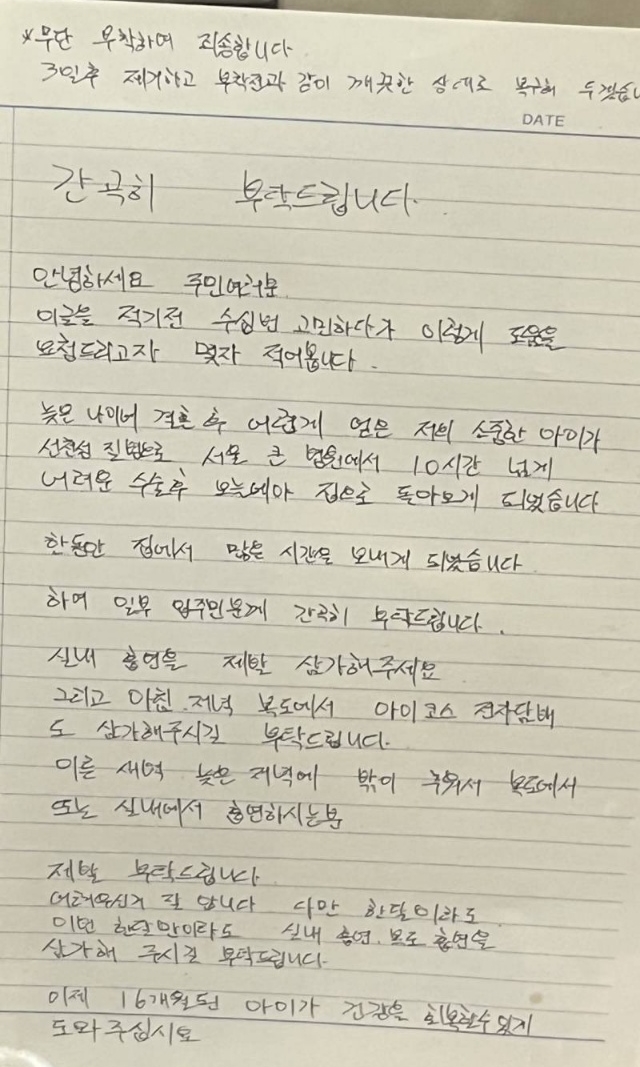 *무단 부착하여 죄송합니다
3일후 제거하고 부착전과 같이 깨끗한 상태로 복구해 두겠습니
DATE
간곡히 부탁드립니다.
안녕하세요 주민여러분
이글을 적기전 수십번 고민하다가 이렇게 도움을
요청드리고자 몇자 적어봅니다.
늦은 나이에 결혼 후 어렵게 얻은 저의 소중한 아이가
선천성 질병으로 서울 큰 병원에서 10시간 넘게
어려운 수술후 오늘에야 집으로 돌아오게 되었습니다
한동안 집에서 많은 시간을 보내게 되었습니다
하여 일부 입주민분께 간곡히 부탁드립니다.
실내 흡연을 제발 삼가해주세요
그리고 아침.저녁 복도에서 아이코스 전자담배
도 삼가해주시길 부탁드립니다.
이른 새벽 늦은 저녁에 밖이 추워서 복도에서
또는 실내에서 흡연하시는분
제발 부탁드립니다
어려우신거 잘 압니다 다만 한달이라도
이번 한달만이라도 실내 흡연.복도 흡연을
삼가해 주시길 부탁드립니다.
이제 16개월된 아이가 건강을 회복할수 있게
도와주십시요